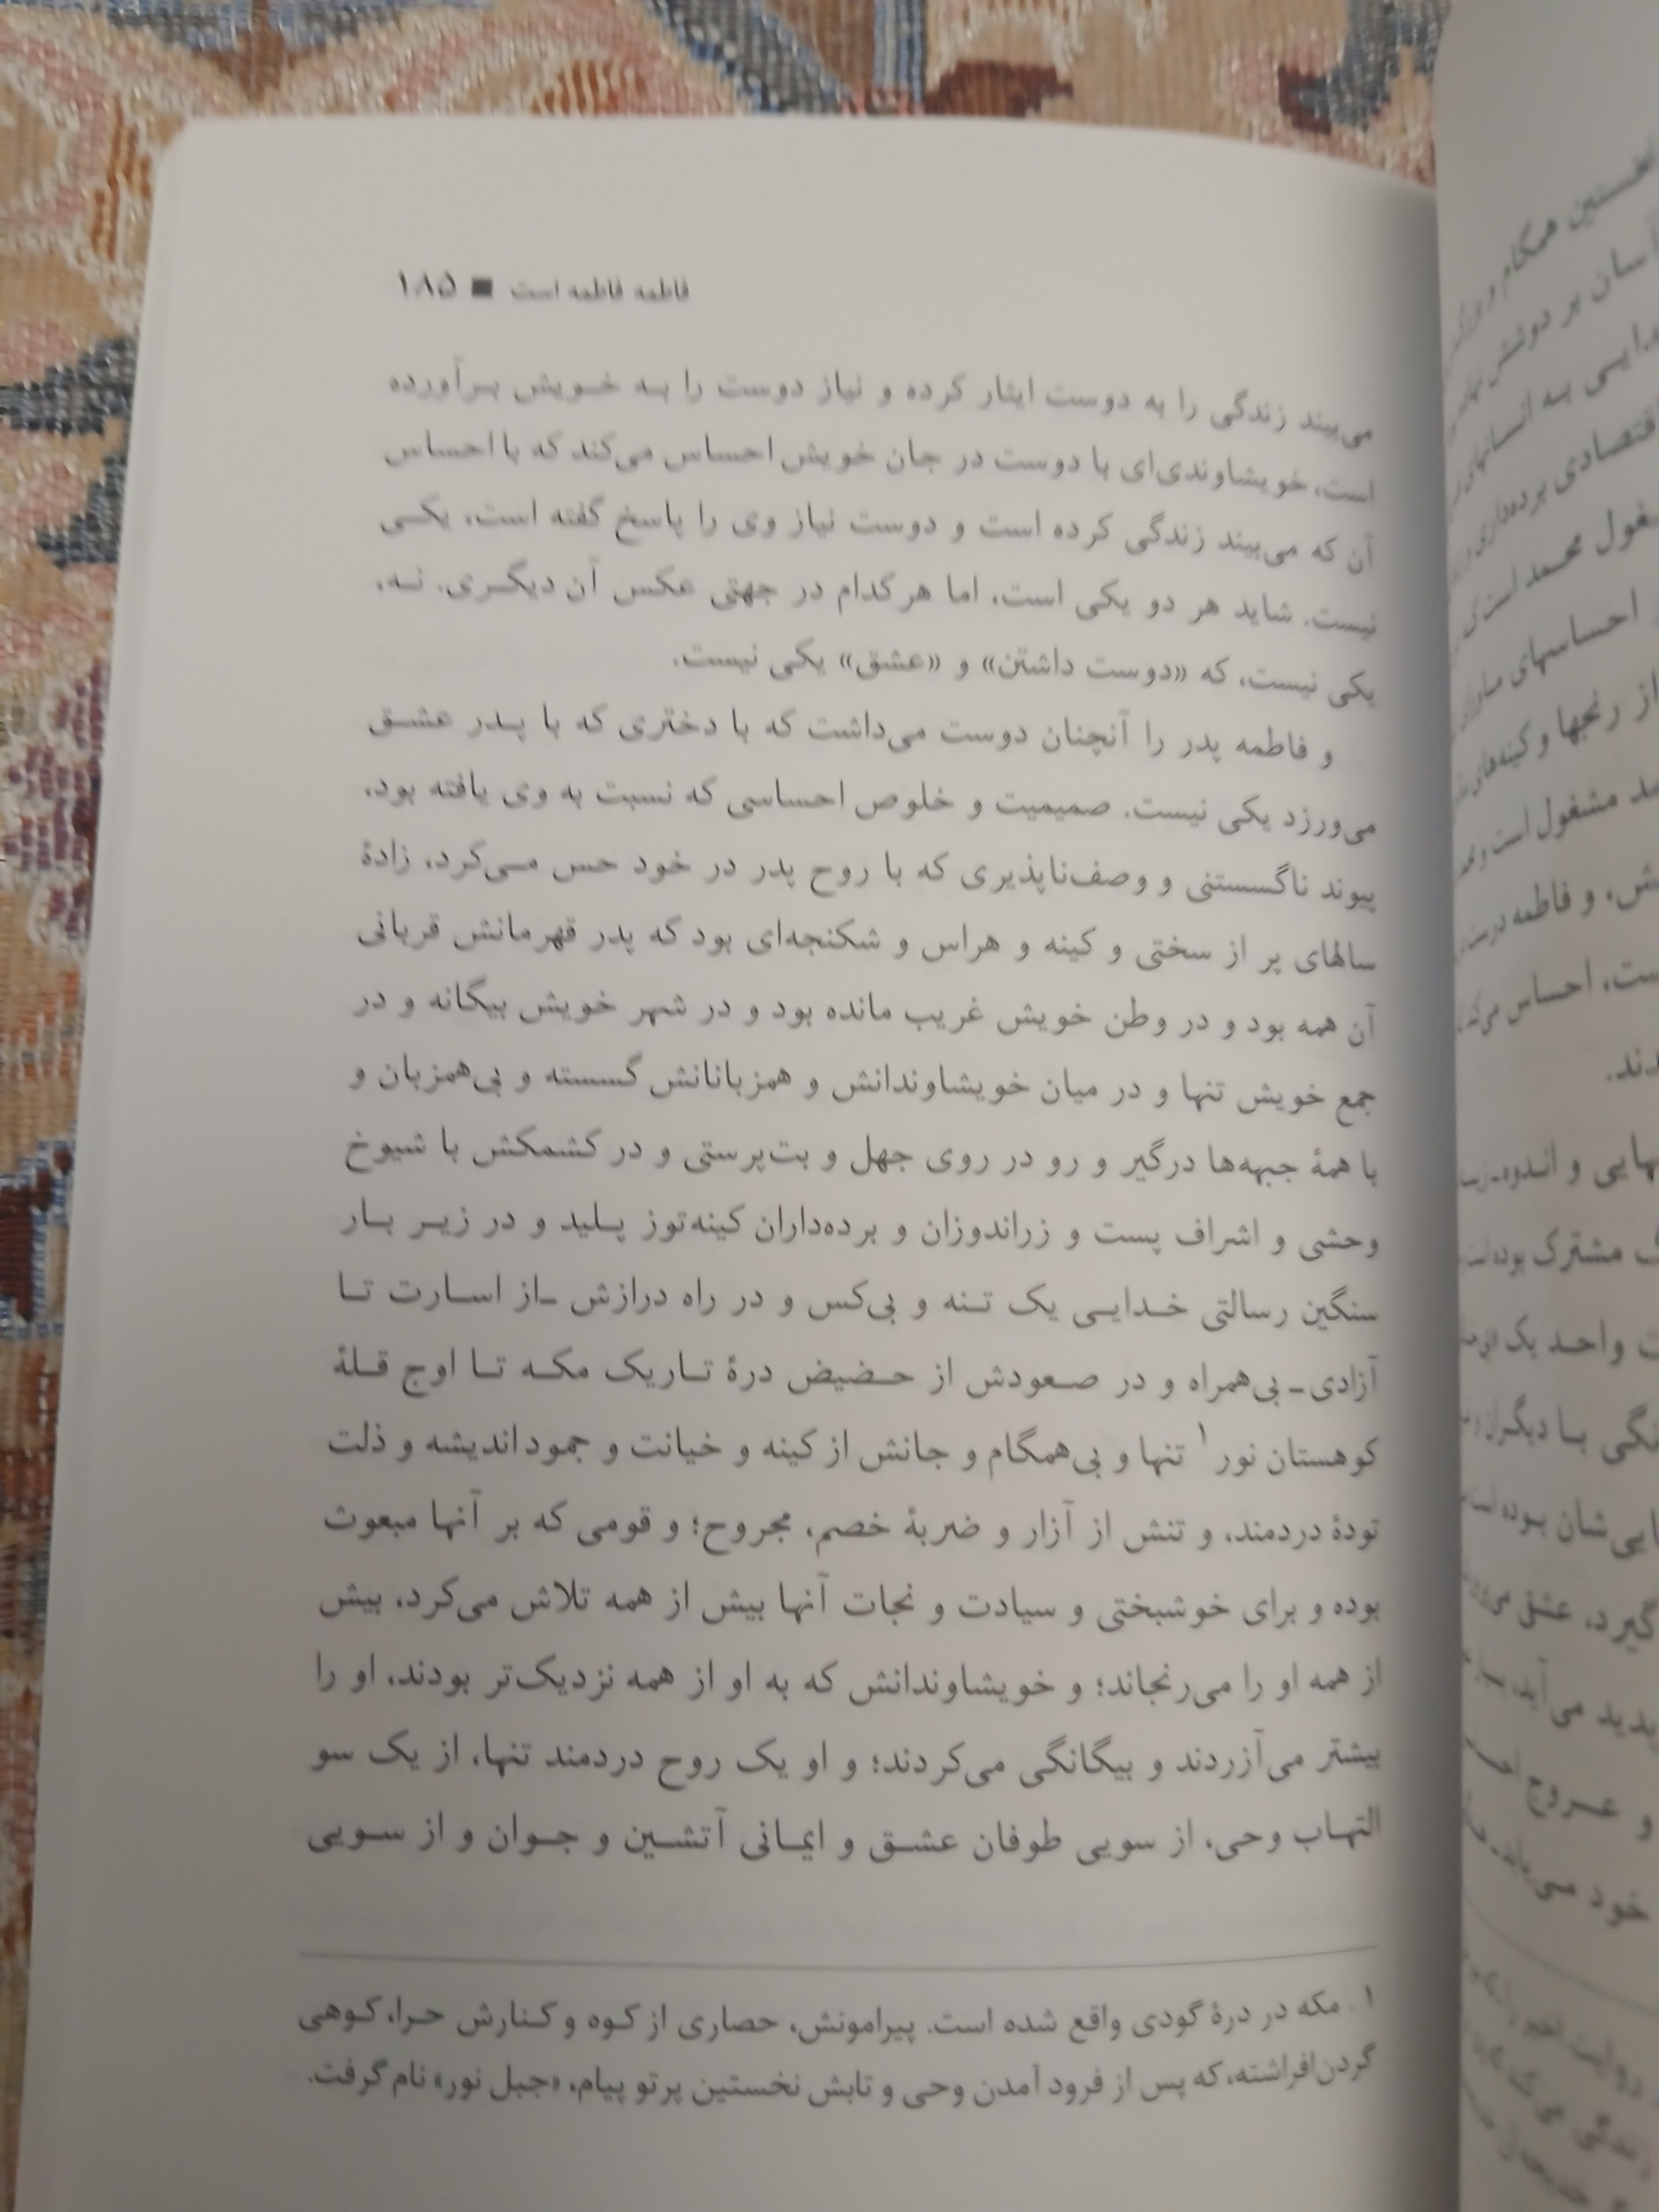 فاطمه فاطمه است ■ ۱۸۵
می‌بیند زندگی را به دوست ایثار کرده و نیاز دوست را به خویش برآورده
است، خویشاوندی‌ای با دوست در جان خویش احساس می‌کند که با احساس
آن که می‌بیند زندگی کرده است و دوست نیاز وی را پاسخ گفته است، یکی
نیست. شاید هر دو یکی است، اما هر کدام در جهتی عکس آن دیگری. نه،
یکی نیست، که «دوست داشتن» و «عشق» یکی نیست.
و فاطمه پدر را آنچنان دوست می‌داشت که با دختری که با پدر عشق
می‌ورزد یکی نیست. صمیمیت و خلوص احساسی که نسبت به وی یافته بود،
پیوند ناگسستنی و وصف‌ناپذیری که با روح پدر در خود حس می‌کرد، زادهٔ
سالهای پر از سختی و کینه و هراس و شکنجه‌ای بود که پدر قهرمانش قربانی
آن همه بود و در وطن خویش غریب مانده بود و در شهر خویش بیگانه و در
جمع خویش تنها و در میان خویشاوندانش و همزبانانش گسسته و بی‌همزبان و
با همهٔ جبهه‌ها درگیر و رو در روی جهل و بت‌پرستی و در کشمکش با شیوخ
وحشی و اشراف پست و زراندوزان و برده‌داران کینه‌توز پلید و در زیر بار
سنگین رسالتی خدایی یک تنه و بی‌کس و در راه درازش ـ از اسارت تا
آزادی ـ بی‌همراه و در صعودش از حضیض درهٔ تاریک مکه تا اوج قلهٔ
کوهستان نور۱ تنها و بی‌همگام و جانش از کینه و خیانت و جمود اندیشه و ذلت
تودهٔ دردمند، و تنش از آزار و ضربهٔ خصم، مجروح؛ و قومی که بر آنها مبعوث
بوده و برای خوشبختی و سیادت و نجات آنها بیش از همه تلاش می‌کرد، بیش
از همه او را می‌رنجاند؛ و خویشاوندانش که به او از همه نزدیک‌تر بودند، او را
بیشتر می‌آزردند و بیگانگی می‌کردند؛ و او یک روح دردمند تنها، از یک سو
التهاب وحی، از سویی طوفان عشق و ایمانی آتشین و جوان و از سویی
۱. مکه در درهٔ گودی واقع شده است. پیرامونش، حصاری از کوه و کنارش حرا، کوهی
گردن‌افراشته، که پس از فرود آمدن وحی و تابش نخستین پرتو پیام، «جبل نور» نام گرفت.